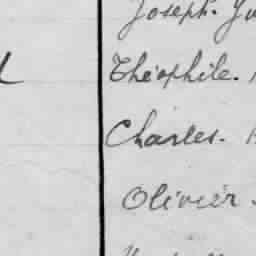 Joseph.
Théophile.
Charles.
Olivier